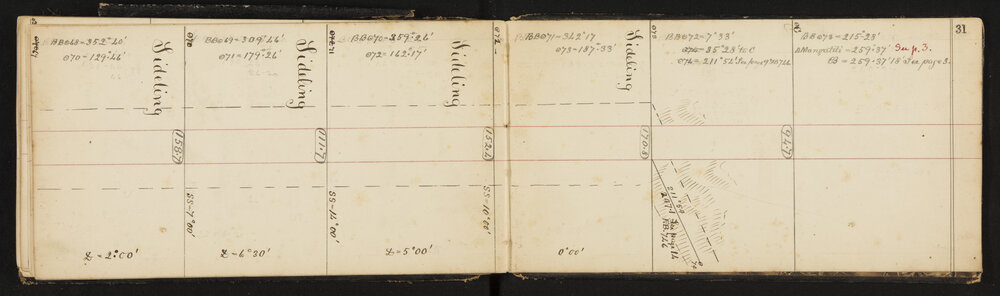 31
BBθ68=352°40'
θ70=129°46'
Sideling
158.7
Z=2°00'
θ70
BBθ69=309°46'
θ71=179°26'
Sideling
111.7
SS-7°00'
Z=6°30'
θ71
BBθ70=359°26'
θ72=162°17'
Sideling
152.2
SS-14°00'
Z=5°00'
θ72
BBθ71=342°17'
θ73=187°33'
Sideling
170.8
SS=10°00'
0°00'
θ73
BBθ72=7°33'
θ75=35°23' to C
θ74=211°52' See page 9
94.7
211°52'
See page 14
BBθ73=215°23'
ΔMangatiti=259°37' See p. 3.
CB=259°37'15" See page 3.